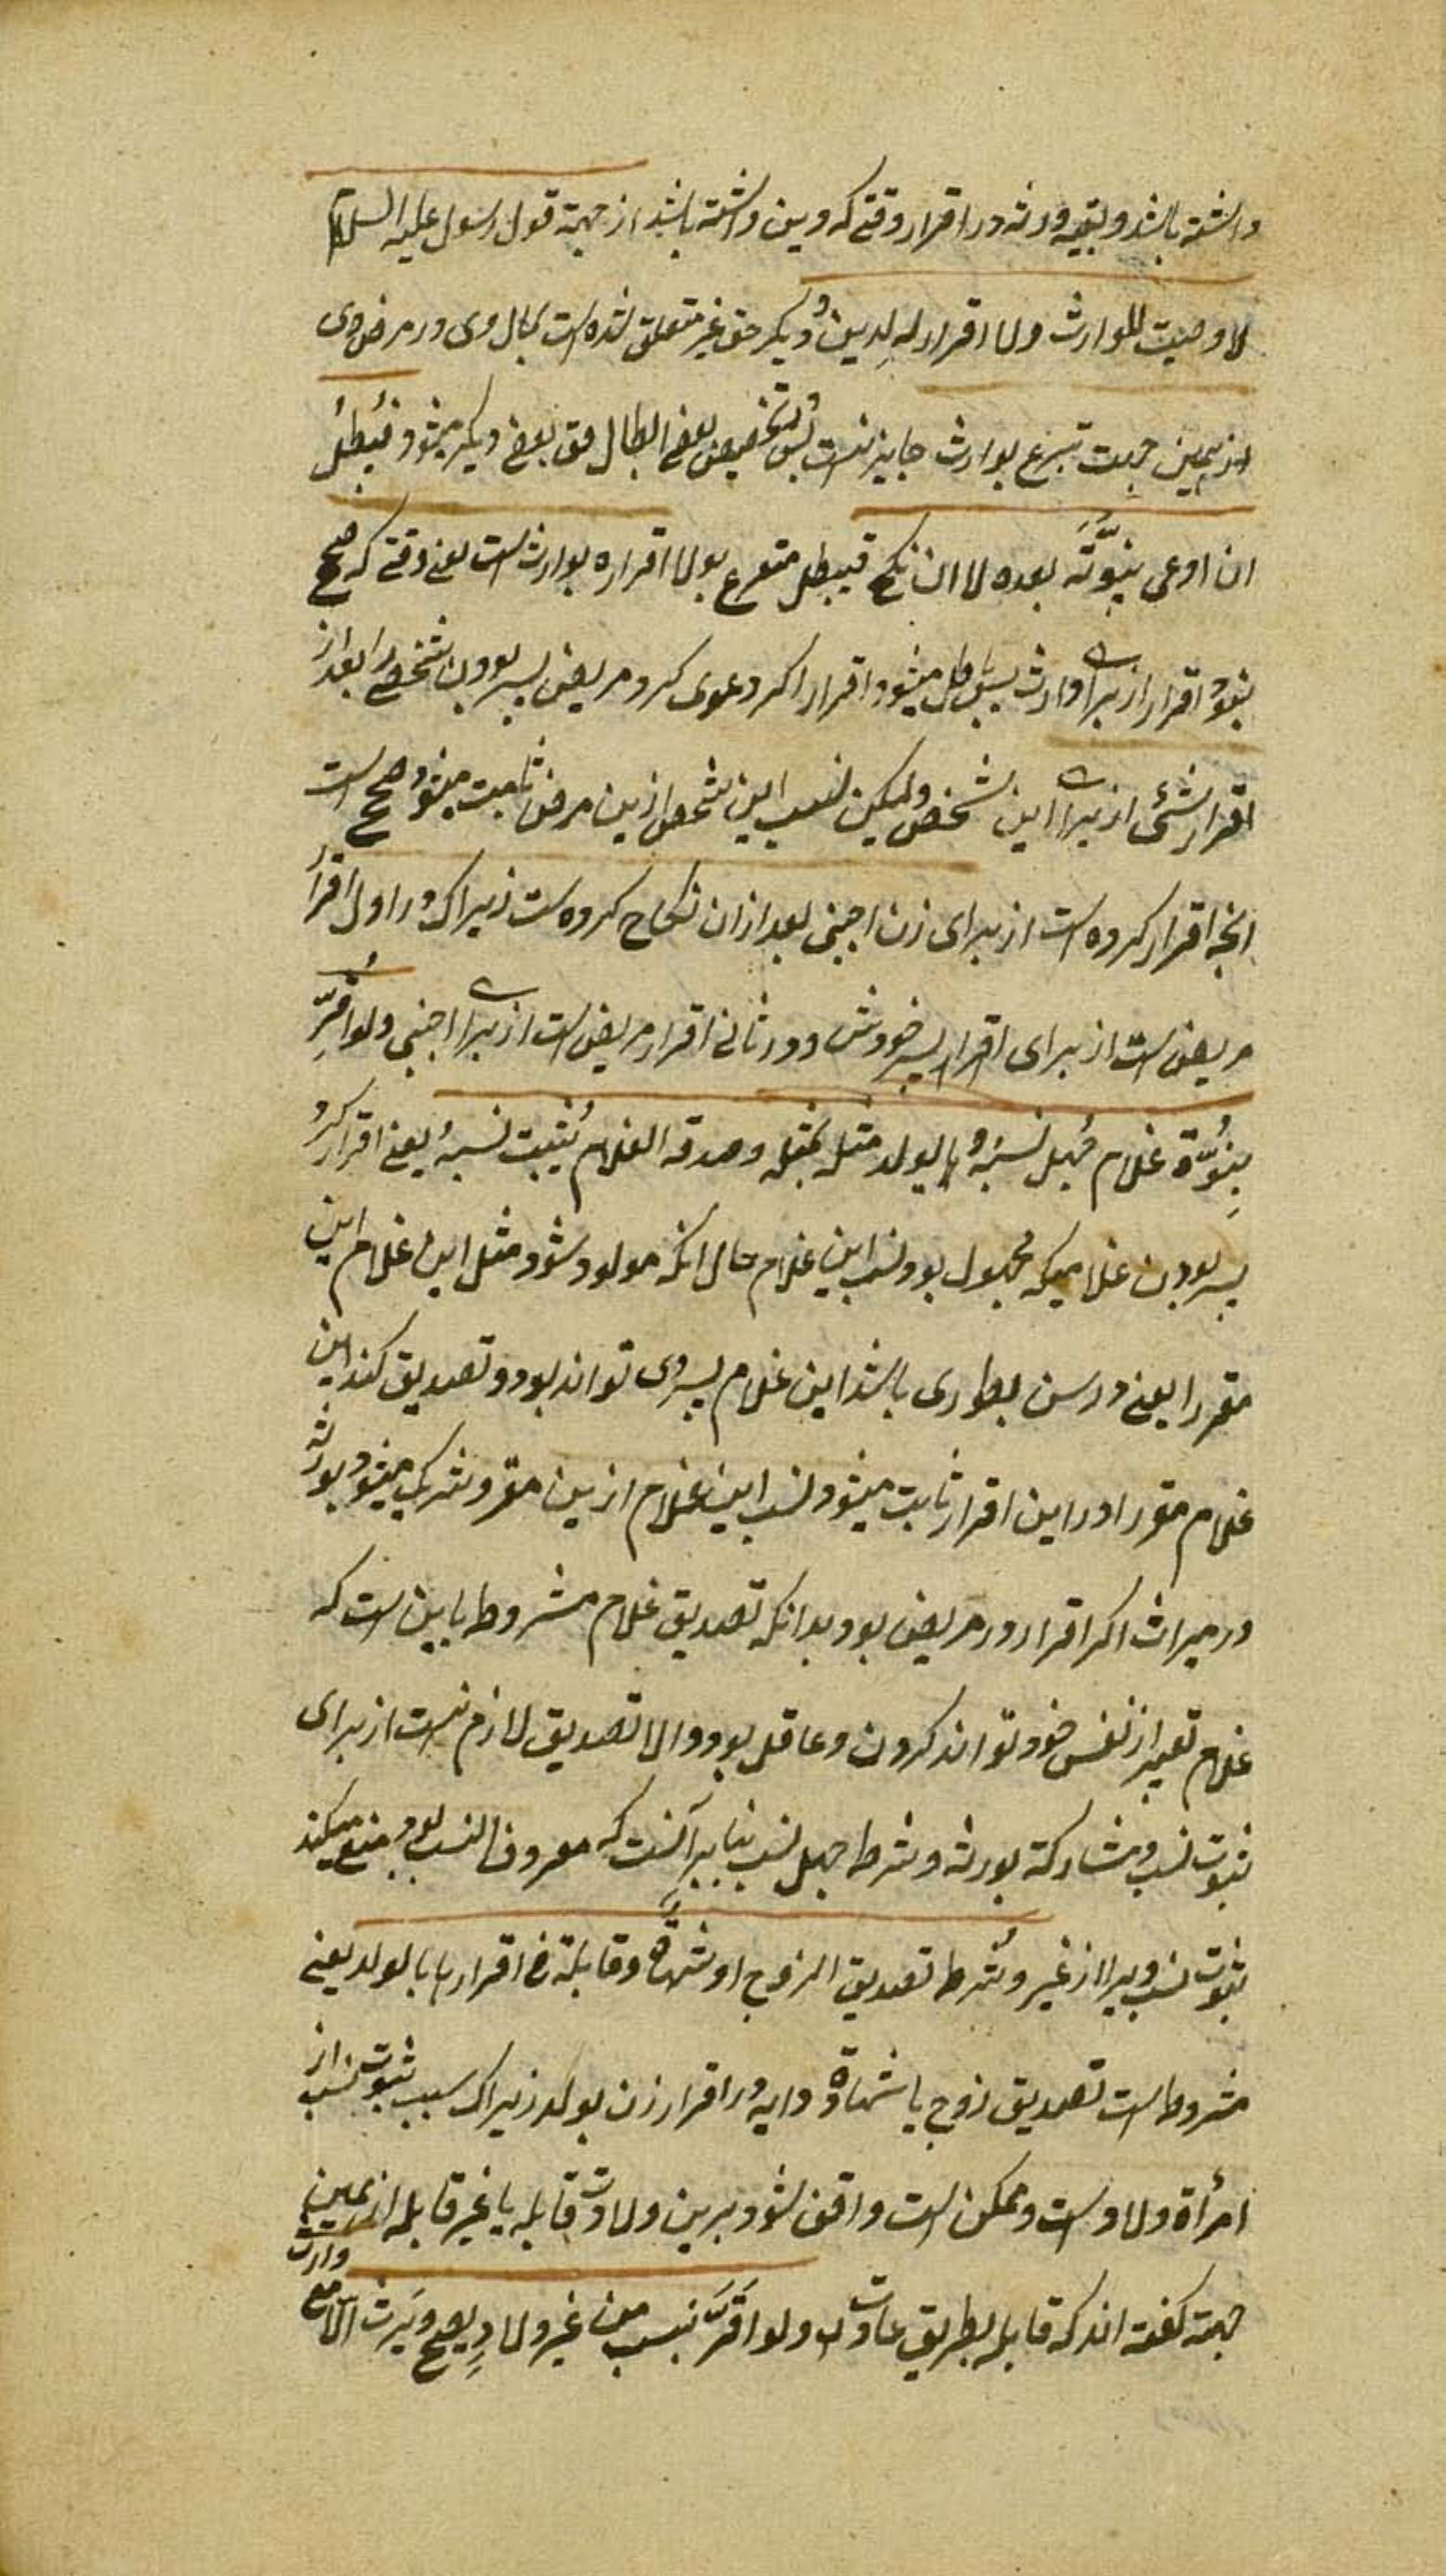 داشته باشد و بقیه ورثه در اقرار وقتی که دین داشته باشد از جهة قول رسول علیه السلام
لا وصیت للوارث ولا اقرار له لدین و دیکر حق غیر متعلق شده است بمال وی در مرض وی
از همین جهت تبرع بوارث جایز نیست پس تخصیص بعضی ابطال حق بعضی دیکر میشود فیبطل
ان ادعی بنوّته بعده لا ان نکح فیبطل متفرع بولا اقراره بوارث است یعنی وقتی که صحیح
نبود اقرار از برای وارث پس باطل میشود اقرار اکر دعوی کرد مریض پسر بودن شخصی را بعد از
اقرار بشئی از برای این شخص ولیکن نسب این شخص ازین مرض ثابت میشود و صحیح است
انچه اقرار کرده است از برای زن اجنبی بعد ازان نکاح کرده است زیراکه در اول اقرار
مریض است از برای اقرار پسر خودش و در ثانی اقرار مریض است از برای اجنبی ولو اقرّ
ببنوّة غلام جهل نسبه و یولد مثله لمثله وصدقه الغلام یثبت نسبه یعنی اقرار کرد
پسر بودن غلامیکه مجهول بود نسب این غلام حال انکه مولود شود مثل این غلام این
مقر را یعنی در سن بطوری باشد این غلام پسر وی تواند بود و تصدیق کند این
غلام مقر را در این اقرار ثابت میشود نسب این غلام ازین مقر و شریک میشود بورثه
در میراث اکر اقرار در مریض بود بدانکه تصدیق غلام مشروط باین است که
غلام تعبیر از نفس خود تواند کردن و عاقل بود و الا تصدیق لازم نیست از برای
ثبوت نسب و مشارکة بورثه و شرط جهل نسب بنابر آنست که معروف النسب بود منع میکند
ثبوت نسب ویرا از غیر و شرط تصدیق الزوج او شهادة قابلة فی اقرارها بالولد یعنی
مشروط است تصدیق زوج یا شهادة دایه در اقرار زن بولد زیراکه سبب ثبوت نسب از
امرأة ولادست و ممکن است واقف شود برین ولادت قابله یا غیر قابله از همین
جهة کفته اند که قابله بطریق عادت ولو اقرّ بنسب من غیر ولادٍ یصح ویرث الا مع
وارث